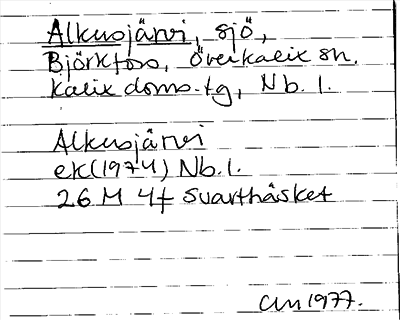 Alkusjärvi, sjö,
Björkfors, Överkalix sn.
Kalix doms-tg, Nb. l.
Alkusjärvi
ek(1974) Nb. l.
26 M 4f Svarthåsket
1977.